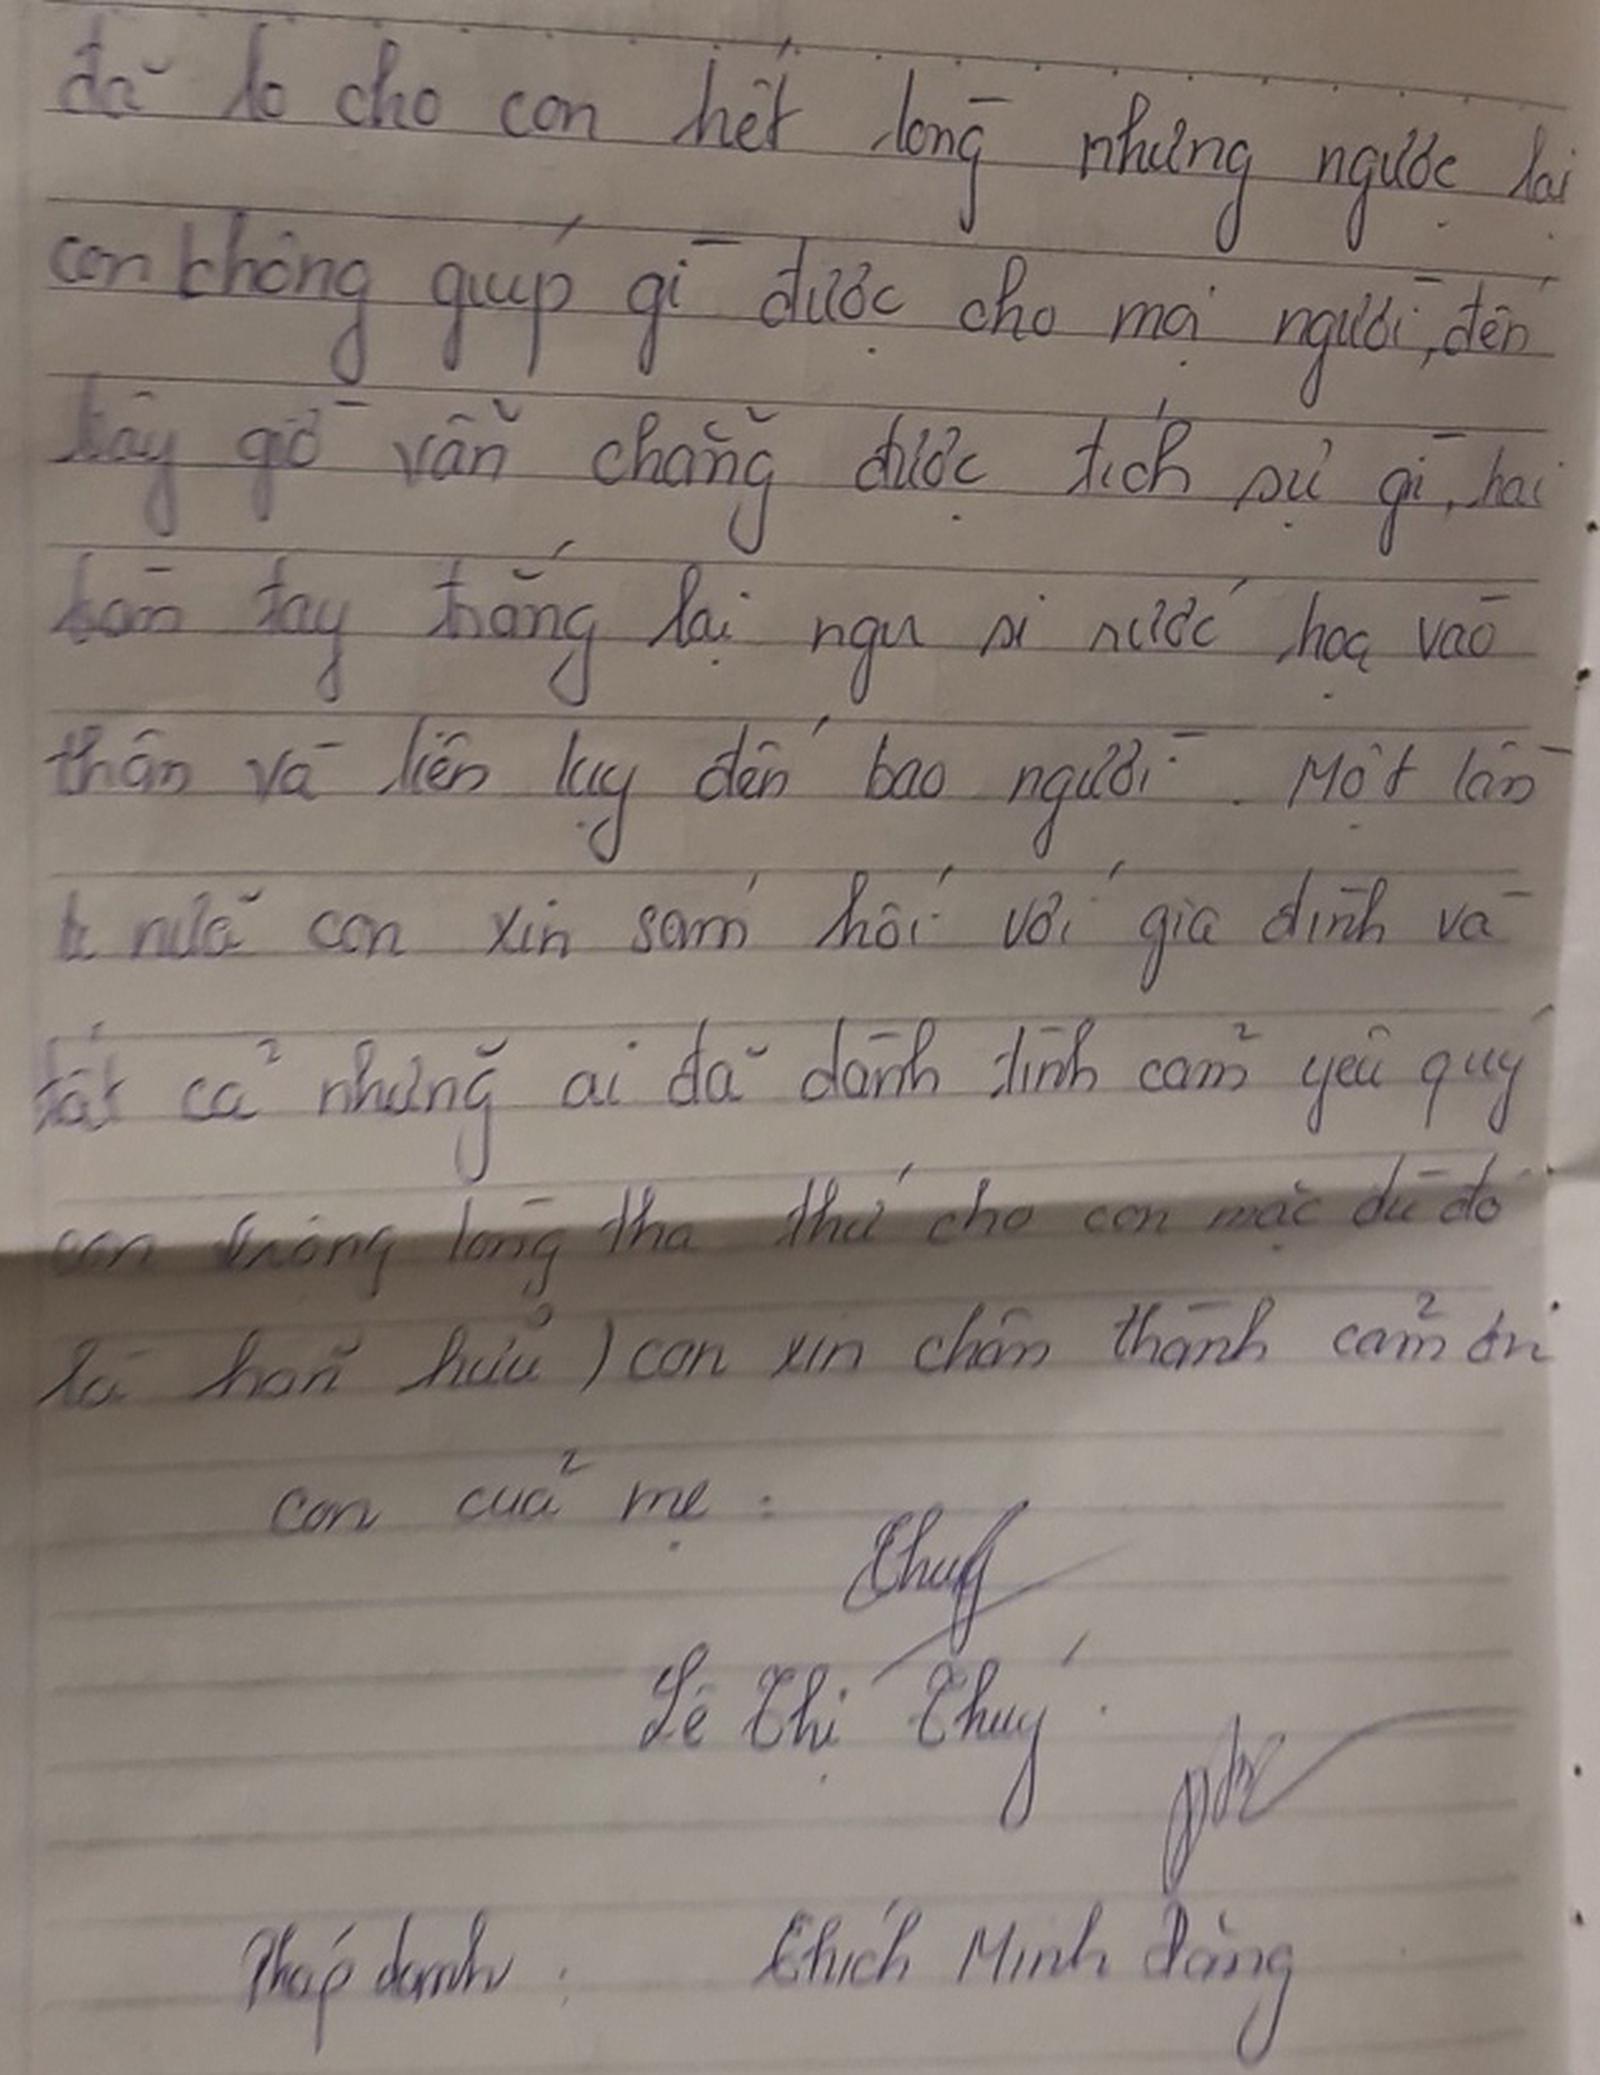 đã lo cho con hết lòng nhưng ngược lại
con không giúp gì được cho mọi người, đến
bây giờ vẫn chẳng được tích sự gì, hai
bàn tay trắng lại ngu si rước họa vào
thân và liên lụy đến bao người. Một lần
nữa con xin sám hối với gia đình và
tất cả những ai đã dành tình cảm yêu quý
con mong lòng tha thứ cho con mặc dù đó
là hoãn hữu) con xin chân thành cảm ơn
con của mẹ :
Thuý
Lê Thị Thuý.
Pháp danh : Thích Minh Đăng